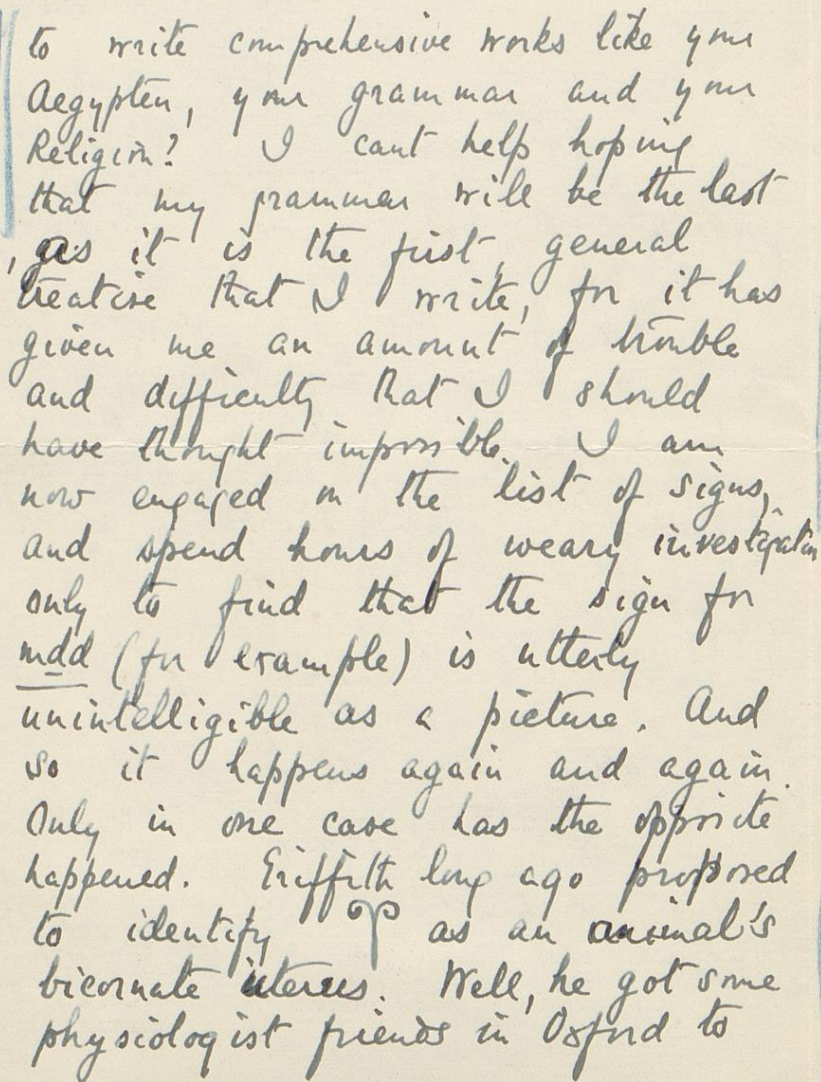 to write comprehensive works like your
Aegypten, your grammar and your
Religion? I cant help hoping
that my grammar will be the last
, as it is the first, general
treatise that I write, for it has
given me an amount of trouble
and difficulty that I should
have thought impossible. I am
now engaged on the list of signs,
and spend hours of weary investigation
only to find that the sign for
mḏd (for example) is utterly
unintelligible as a picture. And
so it happens again and again.
Only in one case has the opposite
happened. Griffith long ago proposed
to identify 𓄑 as an animal's
bicornate uterus. Well, he got some
physiologist friends in Oxford to